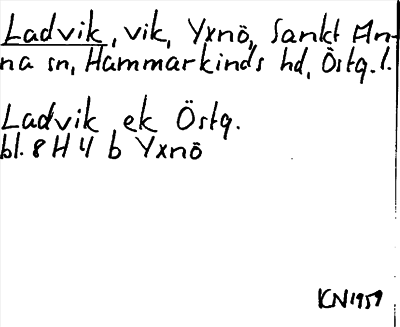 Ladvik, vik, Yxnö, Sankt An-
na sn, Hammarkinds hd, Östg.l.
Ladvik ek Östg.
bl. 8 H 4 b Yxnö
KN 1959